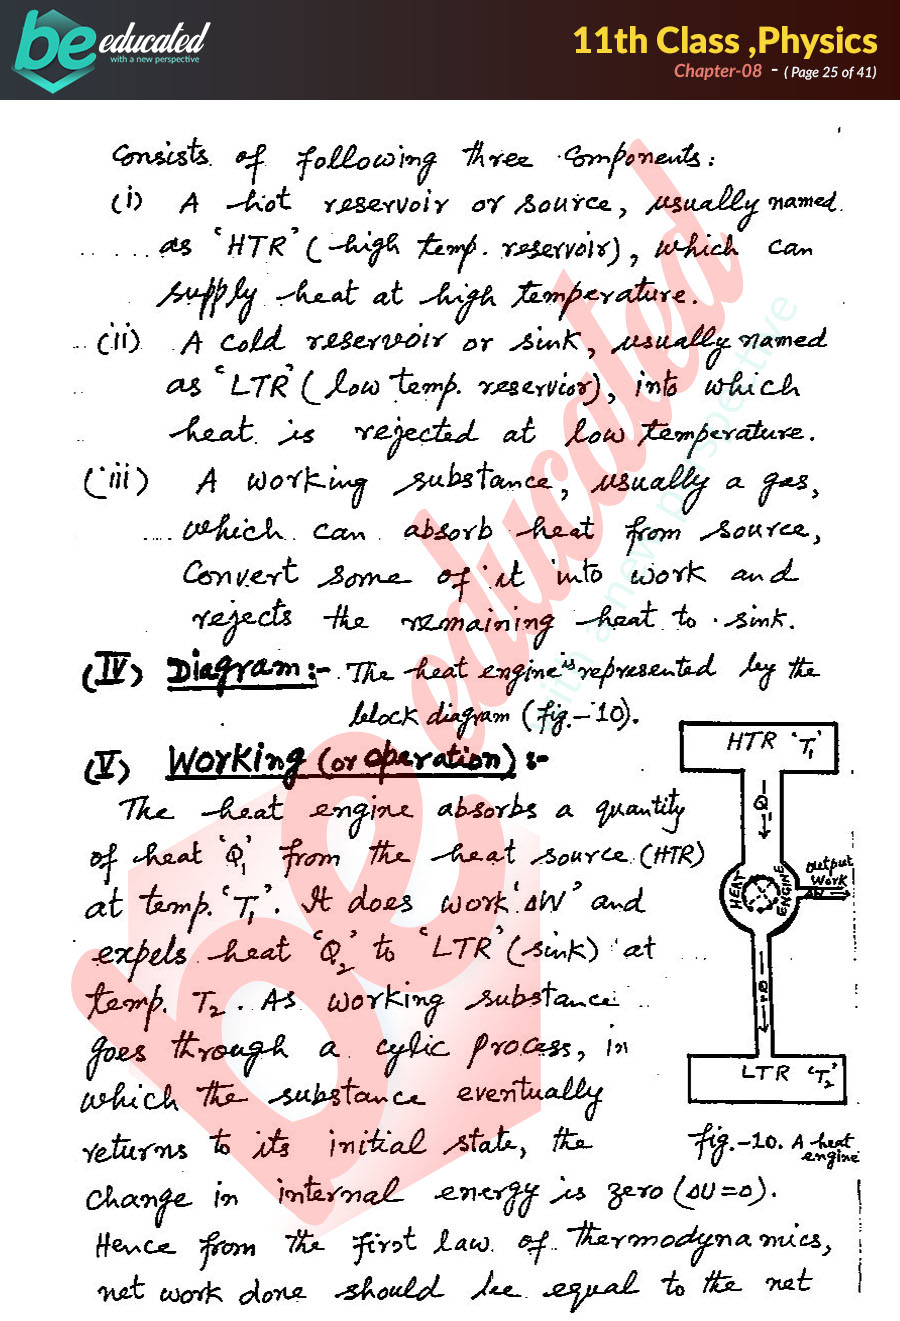 be educated
with a new perspective
11th Class ,Physics
Chapter-08 - ( Page 25 of 41)
Consists of following three components:
(i) A hot reservoir or source, usually named
as 'HTR' (high temp. reservoir), which can
supply heat at high temperature.
(ii) A cold reservoir or sink, usually named
as 'LTR' (low temp. reservior), into which
heat is rejected at low temperature.
(iii) A working substance, usually a gas,
which can absorb heat from source,
Convert some of it into work and
rejects the remaining heat to sink.
(IV) Diagram:- The heat engine is represented by the
block diagram (fig.-10).
(V) Working (or operation):-
The heat engine absorbs a quantity
of heat 'Q₁' from the heat source (HTR)
at temp. 'T₁'. It does work 'ΔW' and
expels heat 'Q₂' to 'LTR' (sink) at
temp. T₂. As working substance
goes through a cylic process, in
which the substance eventually
returns to its initial state, the
change in internal energy is zero (ΔU=0).
Hence from the first law of thermodynamics,
net work done should be equal to the net
HTR 'T₁'
Q₁
HEAT ENGINE
output
Work
ΔW
Q₂
LTR 'T₂'
fig.-10. A heat
engine
be educated
with a new perspective